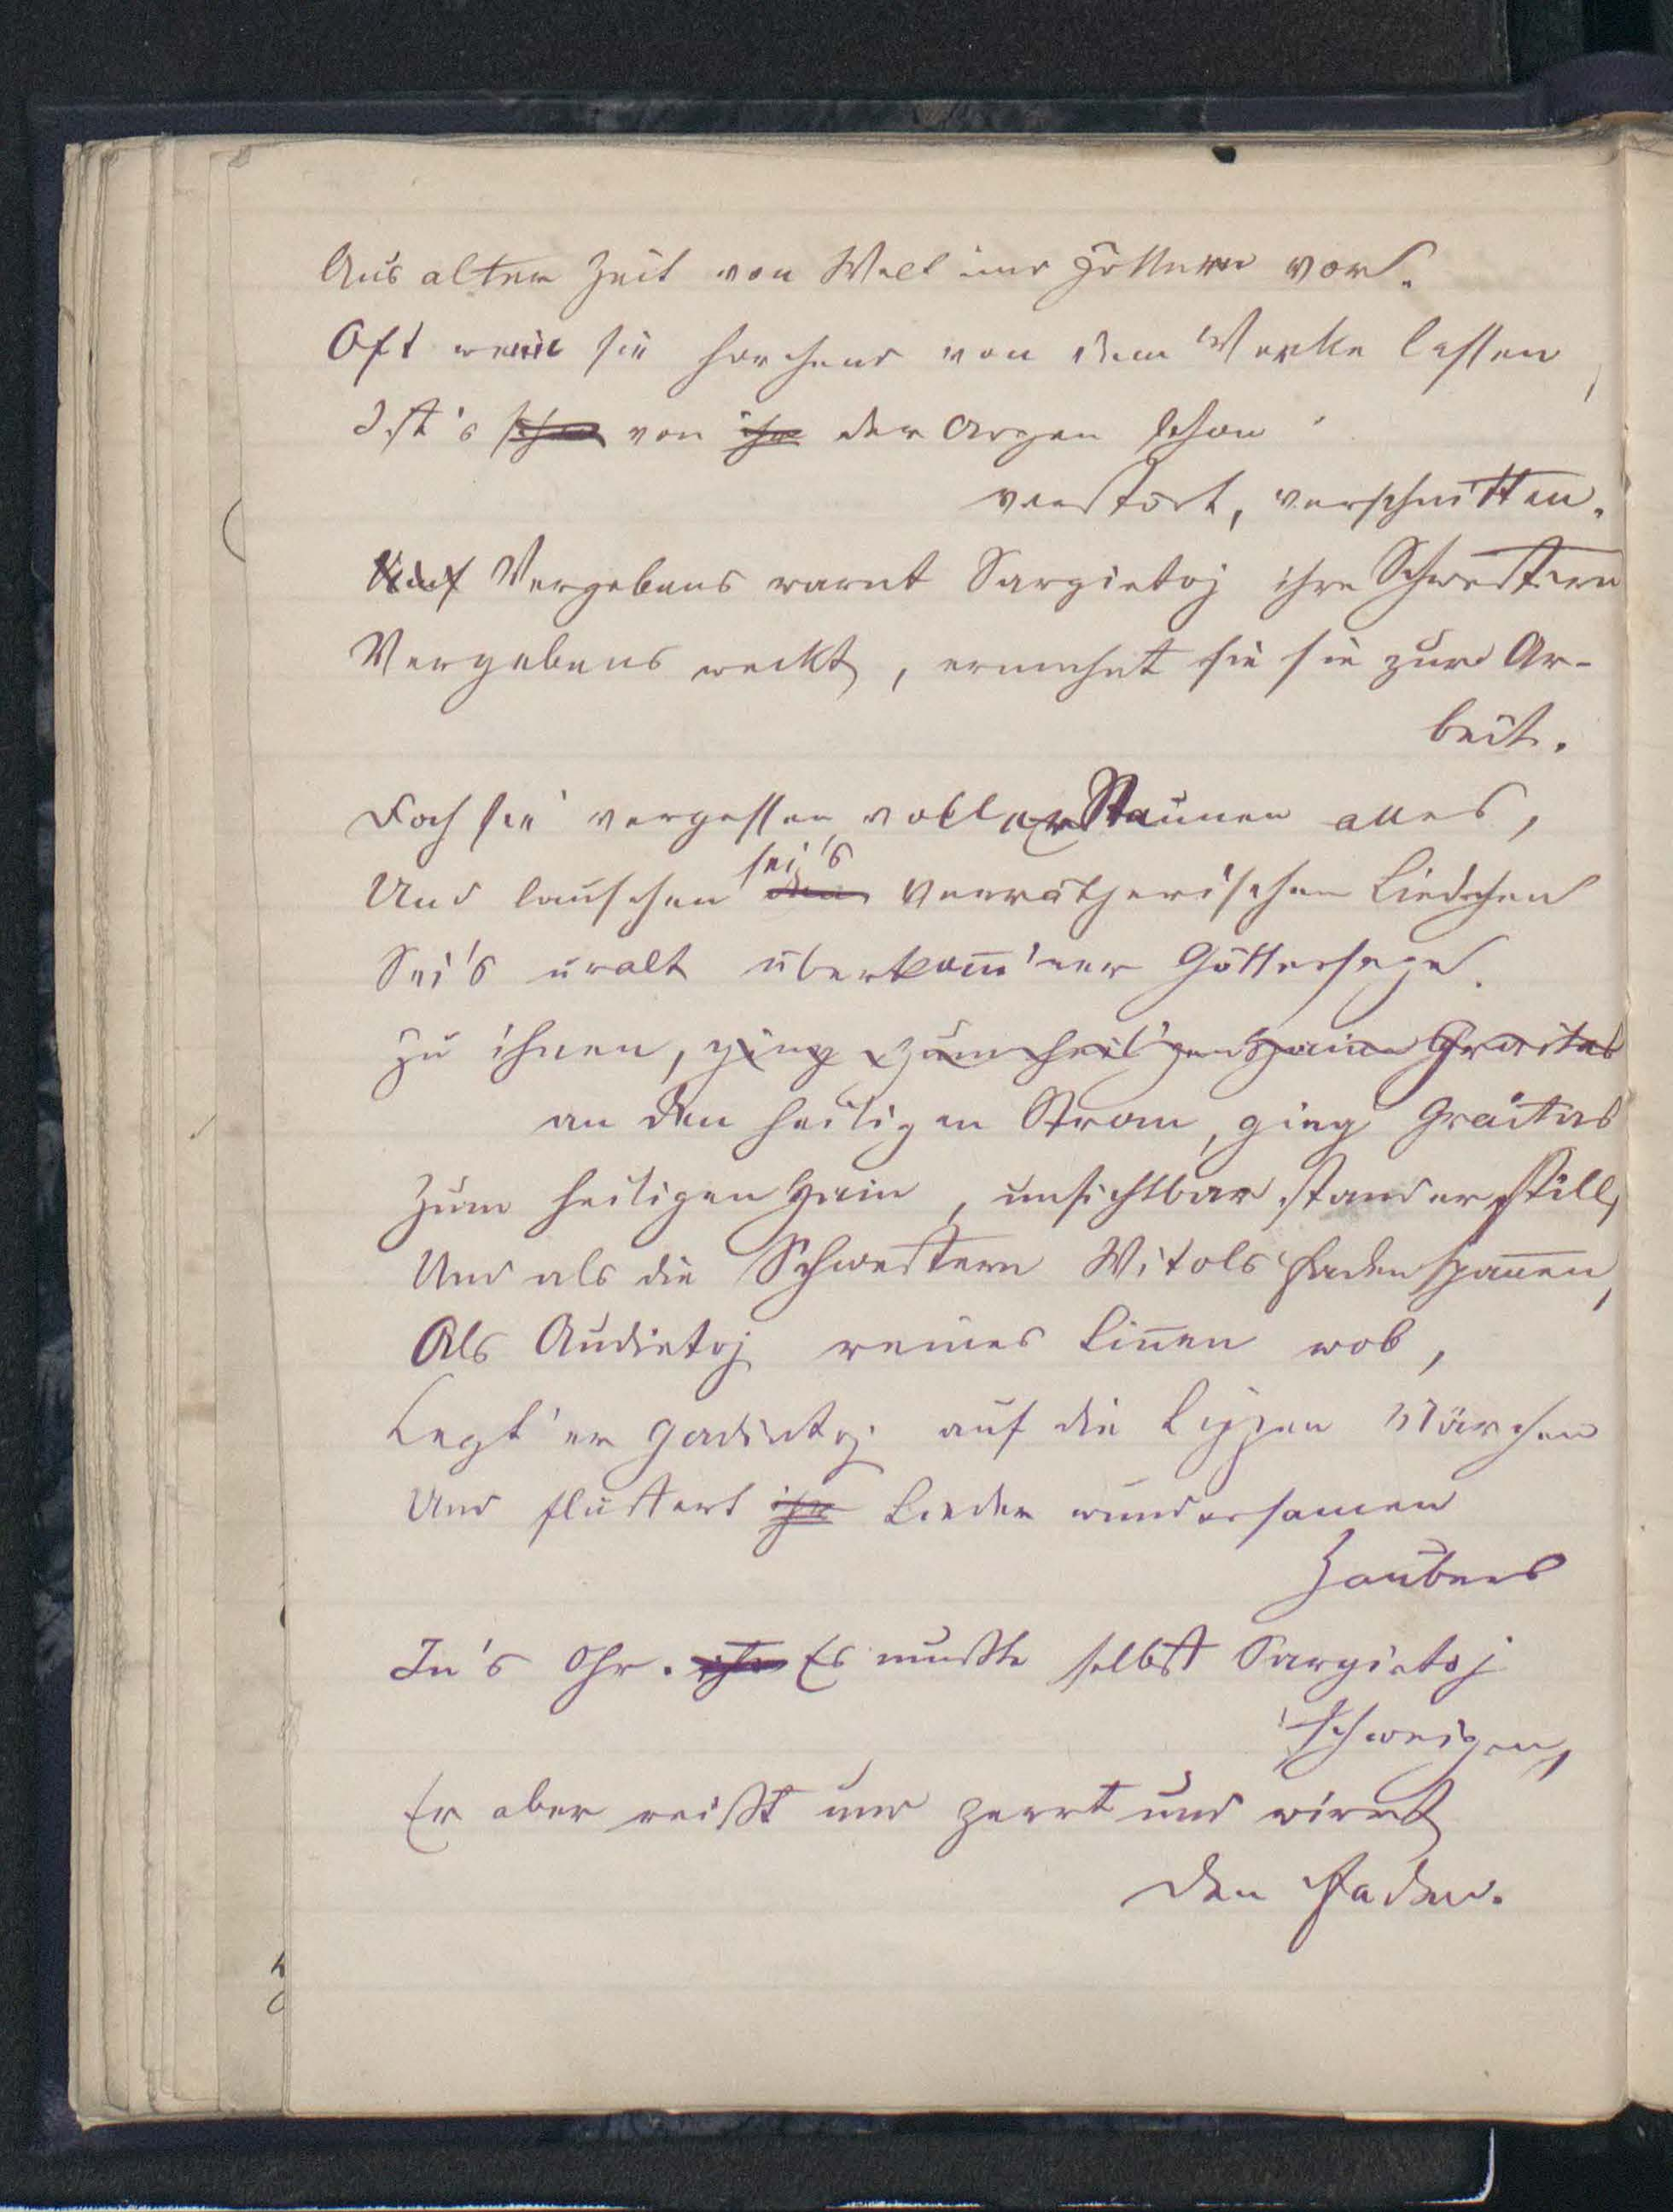 Aus alter Zeit von Welt und Göttern vor.
Oft wenn sie horchend von dem Werke lassen,
Ist's von der Argen schon
verstört, verschnitten.
Vergebens warnt Sargietoj ihre Schwestern
Vergebens weckt, ermahnt sie sie zur Ar-
beit.
Doch sie vergessen voller Staunen alles,
sei's
Und lauschen verrätherischen Liedchen
Sei's uralt überkom̄'ner Göttersage.
Zu ihnen, ging zum heil'gen Haine Graitas
an den heiligen Strom, ging Graitas
Zum heiligen Hain, unsichtbar stand er still,
Und als die Schwestern Witols Faden span̄en,
Als Audietoj reines Lin̄en wob,
Legt' er Gadintoj auf die Lippen Märchen
Und flüstert ihr Lieder wundersamen
Zaubers
In's Ohr. Es mußte selbst Sargietoj
schweigen,
Er aber reißt und zerrt und wirrt
den Faden.